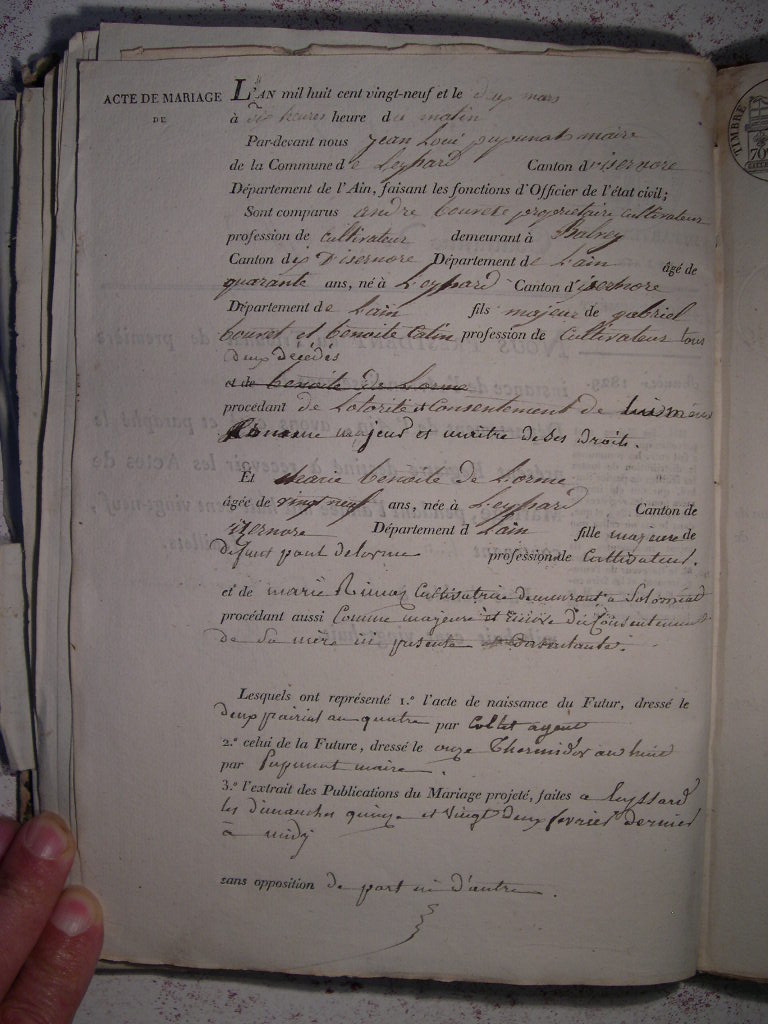 ACTE DE MARIAGE
DE
L'AN mil huit cent vingt-neuf et le deux mars
à dix heures heure du matin
Par-devant nous jean Loui pupunat maire
de la Commune de Leyssard Canton d'isernore
Département de l'Ain, faisant les fonctions d'Officier de l'état civil;
Sont comparus andré bouvet proprietaire cultivateur
profession de cultivateur demeurant à Balvay
Canton d'isernore Département de L'ain âgé de
quarante ans, né à Leyssard Canton d'isernore
Département de L'ain fils majeur de gabriel
bouvet et benoite profession de cultivateur tous
deux décédés
et de benoite de Lorme
procédant de Lotorité et Consentement de lui même
Comme majeur et maitre de ses Droits.
Et Marie benoite de Lorme
âgée de vingt neuf ans, née à Leyssard Canton de
isernore Département d L'ain fille majeure de
defunt paul delorme profession de Cultivateur.
et de marie Cultivatrice demeurant a Solomiat
procédant aussi Comme majeure et du Consentement
de Sa mère ici presente
Lesquels ont représenté 1.º l'acte de naissance du Futur, dressé le
deux prairial an quatre par Collet agent
2.º celui de la Future, dressé le onze Thermidor an huit
par Pupunat maire.
3.º l'extrait des Publications du Mariage projeté, faites a leyssard
les dimanches quinze et vingt deux fevrier dernier
à midy
sans opposition de part ni d'autre.
TIMBRE